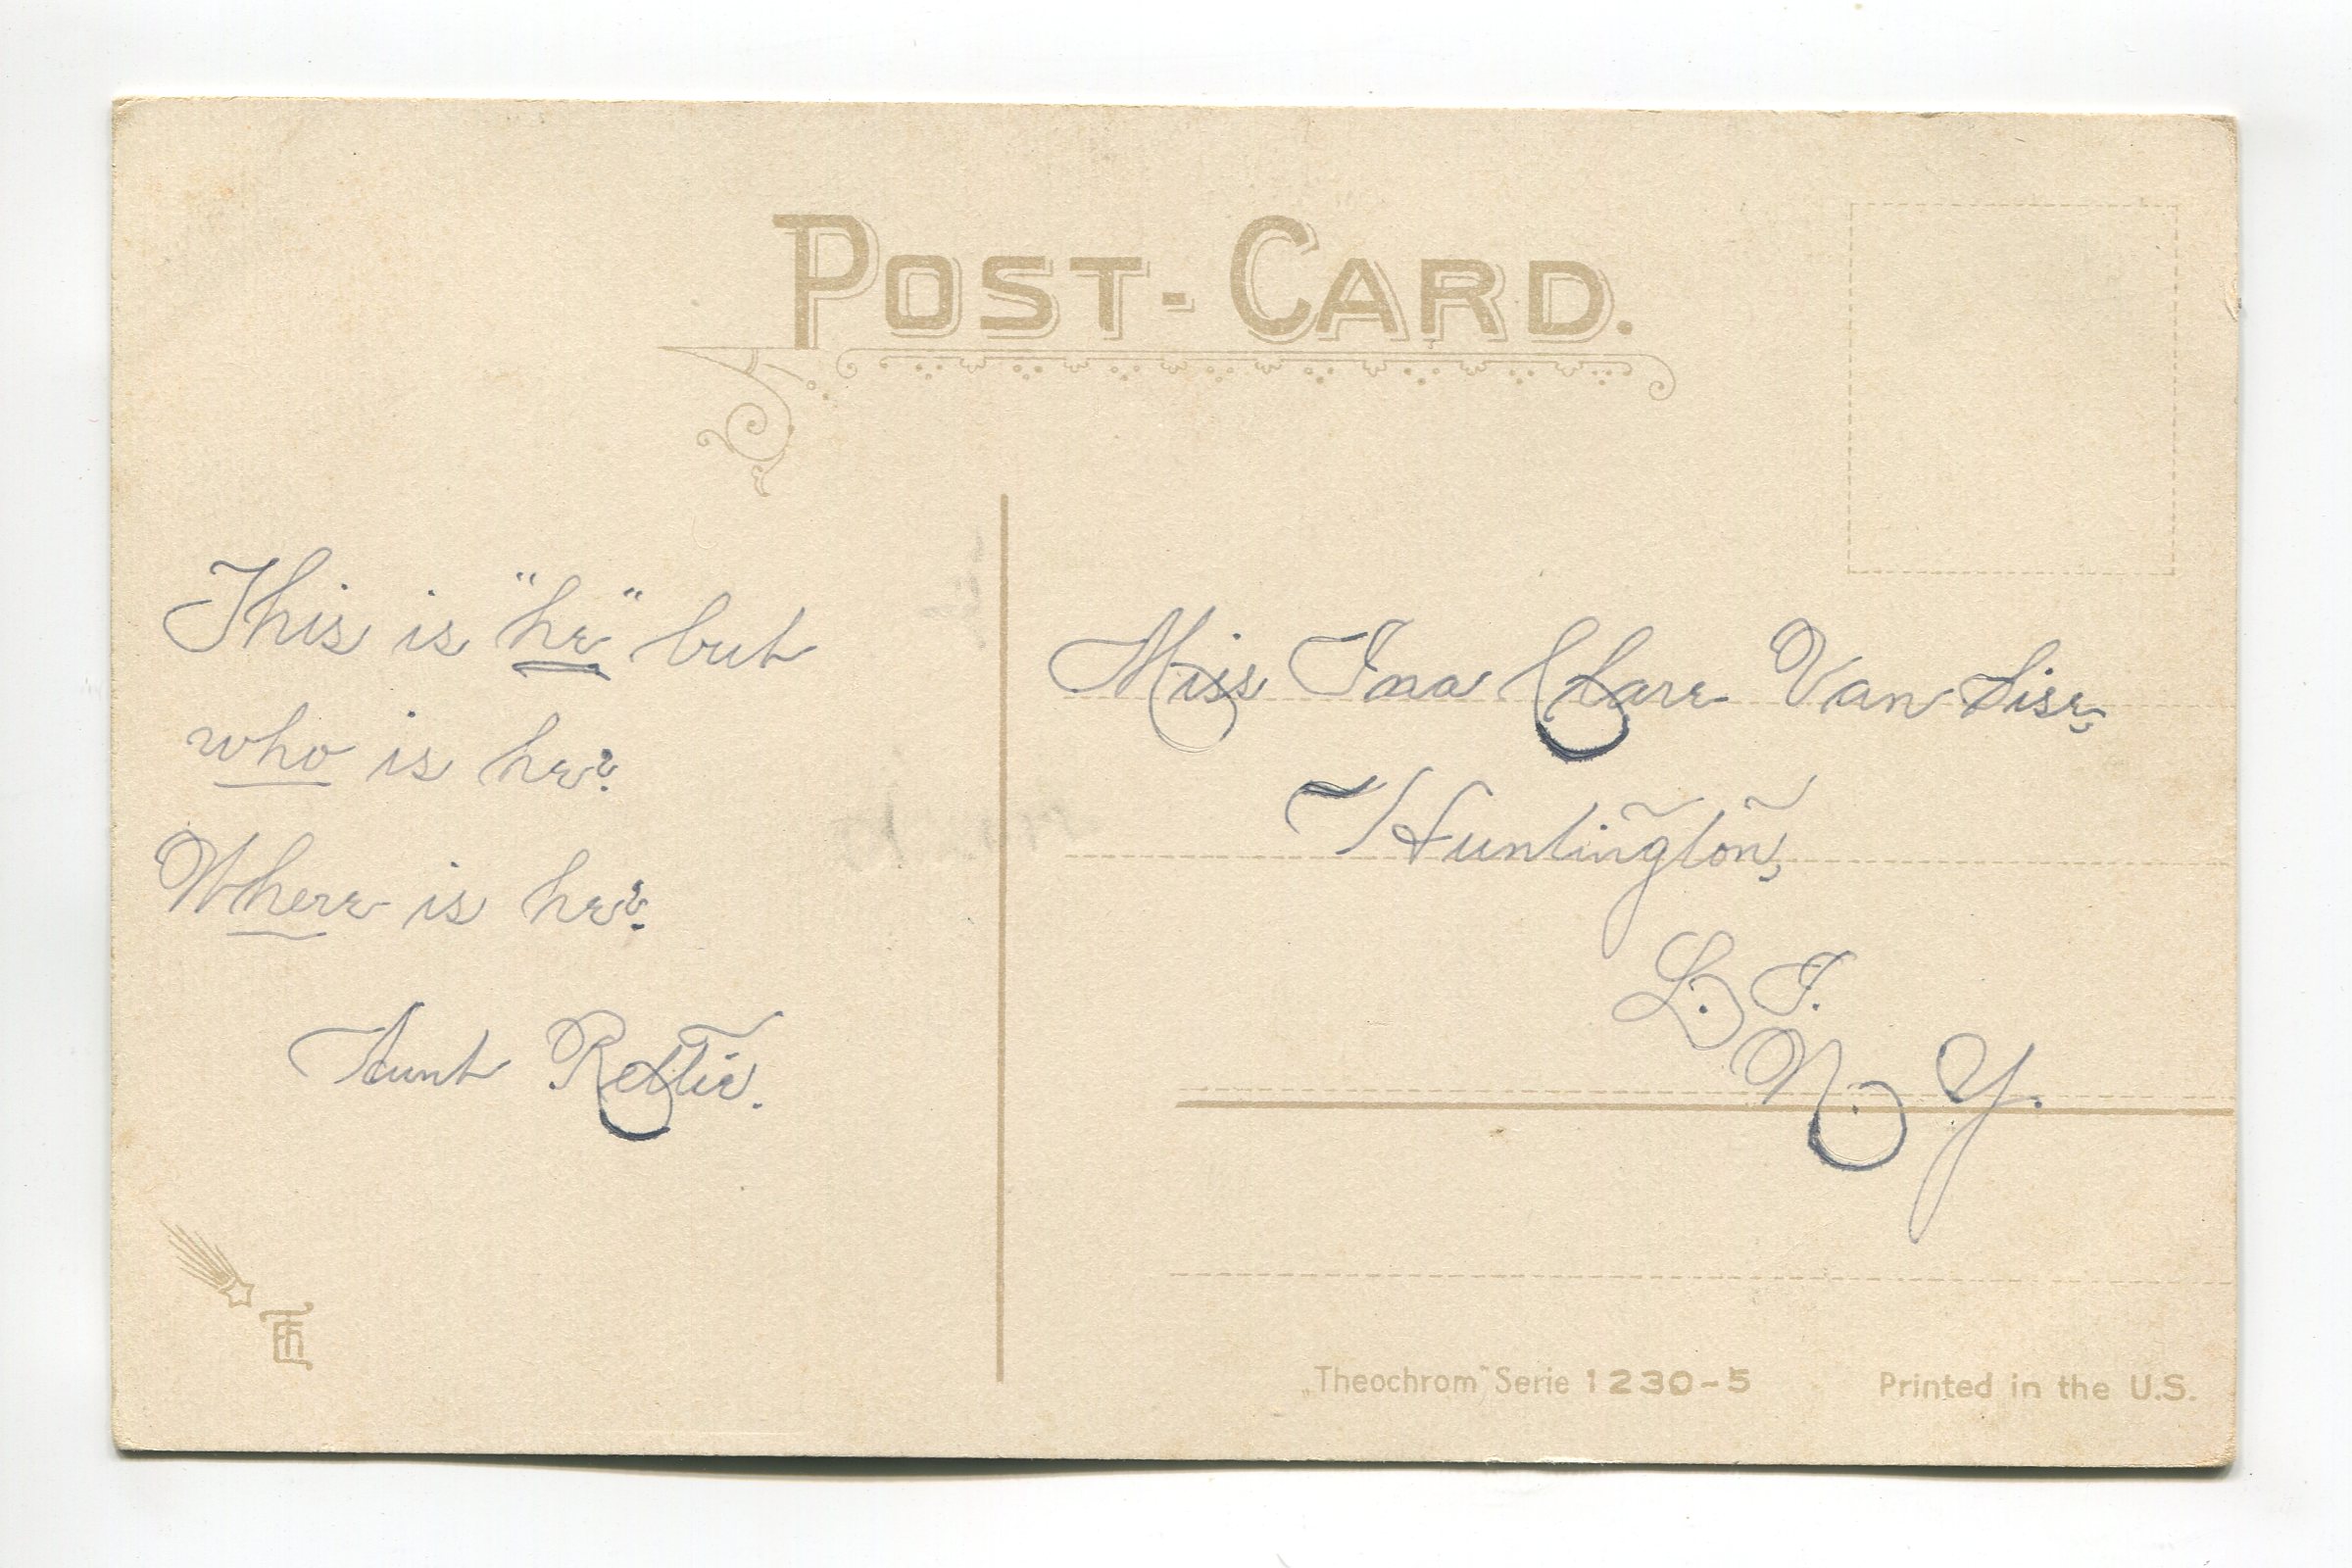 POST-CARD.
This is "he" but
who is he?
Where is he?
Aunt Rettie.
Miss Ina Clare Van Sise,
Huntington,
L. I.
N. Y.
„Theochrom" Serie 1230-5
Printed in the U.S.